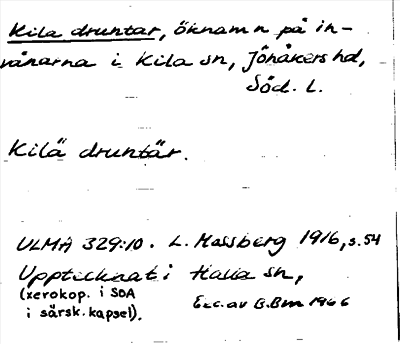 Kila druntar, öknamn på in-
vånarna i Kila sn, Jönåkers hd,
Söd. L.
Kilä druntär.
ULMA 329:10. L. Hassberg 1916, s. 54
Upptecknat i Halla sn,
(xerokop. i SOA
i särsk. kapsel).
Exc. av B.Bm 1966